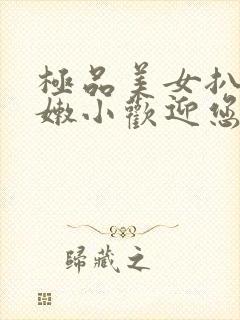 極品美女扒
嫩小歡迎您
歸藏之